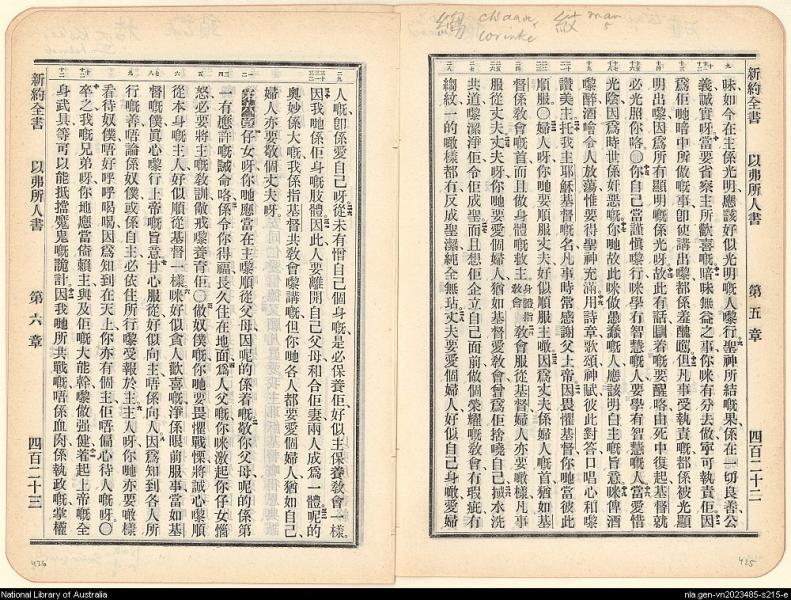 縐 chaau,
corinke
紋 man,
新約全書 以弗所人書 第五章 四百二十二
味如今在主係光明應該好似光明嘅人嚟行聖神所結嘅果係在一切良善公
義誠實呀當要省察主所歡喜嘅暗昧無益之事你咪有分去做寧可執責佢因
爲佢哋暗中所做嘅事卽使講出嚟都係羞醜嘅但凡事受執責嘅都係被光顯
明出嚟因爲所有顯明嘅係光呀故此有話瞓着嘅要醒咯由死中復起基督就
必光照你咯〇你自己當謹愼嚟行咪學冇智慧嘅人要學有智慧嘅人當愛惜
光陰因爲時世係奸惡嘅你哋故此咪做愚蠢嘅人應該明白主嘅旨意咪俾酒
嚟醉酒喻令人放蕩惟要得聖神充滿用詩章歌頌神賦彼此對答口唱心和嚟
讚美主托我主耶穌基督嘅名凡事時常感謝父上帝因畏懼基督你哋當彼此
順服〇婦人呀你哋要順服丈夫好似順服主噉因爲丈夫係婦人嘅首猶如基
督係教會嘅首而且做身體嘅救主身體指教會教會服基督婦人亦要噉樣凡事
服從丈夫丈夫呀你哋要愛個婦人猶如基督愛教會曾爲佢捨嘵自己用水洗
共道嚟潔淨佢令佢成聖而且想佢企立自己面前做個榮耀嘅教會冇瑕疵冇
縐紋一的噉樣都冇反成聖潔純全無玷丈夫要愛個婦人好似自己身噉愛婦
425
人嘅卽係愛自己呀從未有憎自己個身嘅是必保養佢好似主保養教會一樣
因我哋係佢身嘅肢體因此人要離開自己父母和合佢妻兩人成爲一體呢的
奧妙係大嘅我係指基督共教會嚟講嘅但你哋各人都要愛個婦人猶如自己
婦人亦要敬個丈夫呀
仔女呀你哋應當在主嚟順從父母因呢的係着嘅敬你父母呢的係第
一有應許嘅誡命咯係令你得福長久住在地面爲人父嘅你咪激起你仔女惱
怒必要將主嘅教訓儆戒嚟養育佢〇做奴僕嘅你哋要畏懼戰慄將誠心嚟順
從本身嘅主人好似順從基督一樣咪好似貪人歡喜嘅淨係眼前服事當如基
督嘅僕眞心嚟行上帝嘅旨意甘心服從好似向主唔係向人因爲知到各人所
行嘅善唔論係奴僕或係自主必依住所行嚟受報於主主人呀你哋亦要噉樣
看待奴僕唔好呼呼喝喝因爲知到在天上你亦有個主佢唔偏心待人嘅呀〇
卒之我嘅兄弟呀你地應當倚賴主與及佢嘅大能幹嚟做强健着起上帝嘅全
身武具等可以能抵擋魔鬼嘅詭計因我哋所共戰嘅唔係血肉係執政嘅掌權
新約全書 以弗所人書 第六章 四百二十三
426
National Library of Australia
nla.gen-vn2023485-s215-e